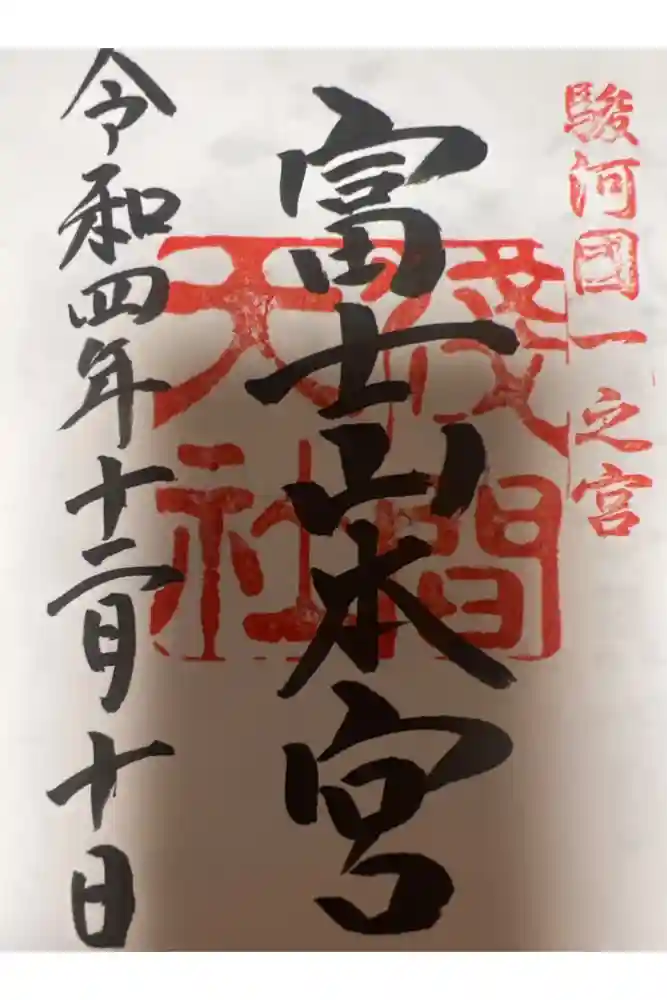 駿河國一之宮
富士山本宮
淺間
大社
令和四年十二月十日